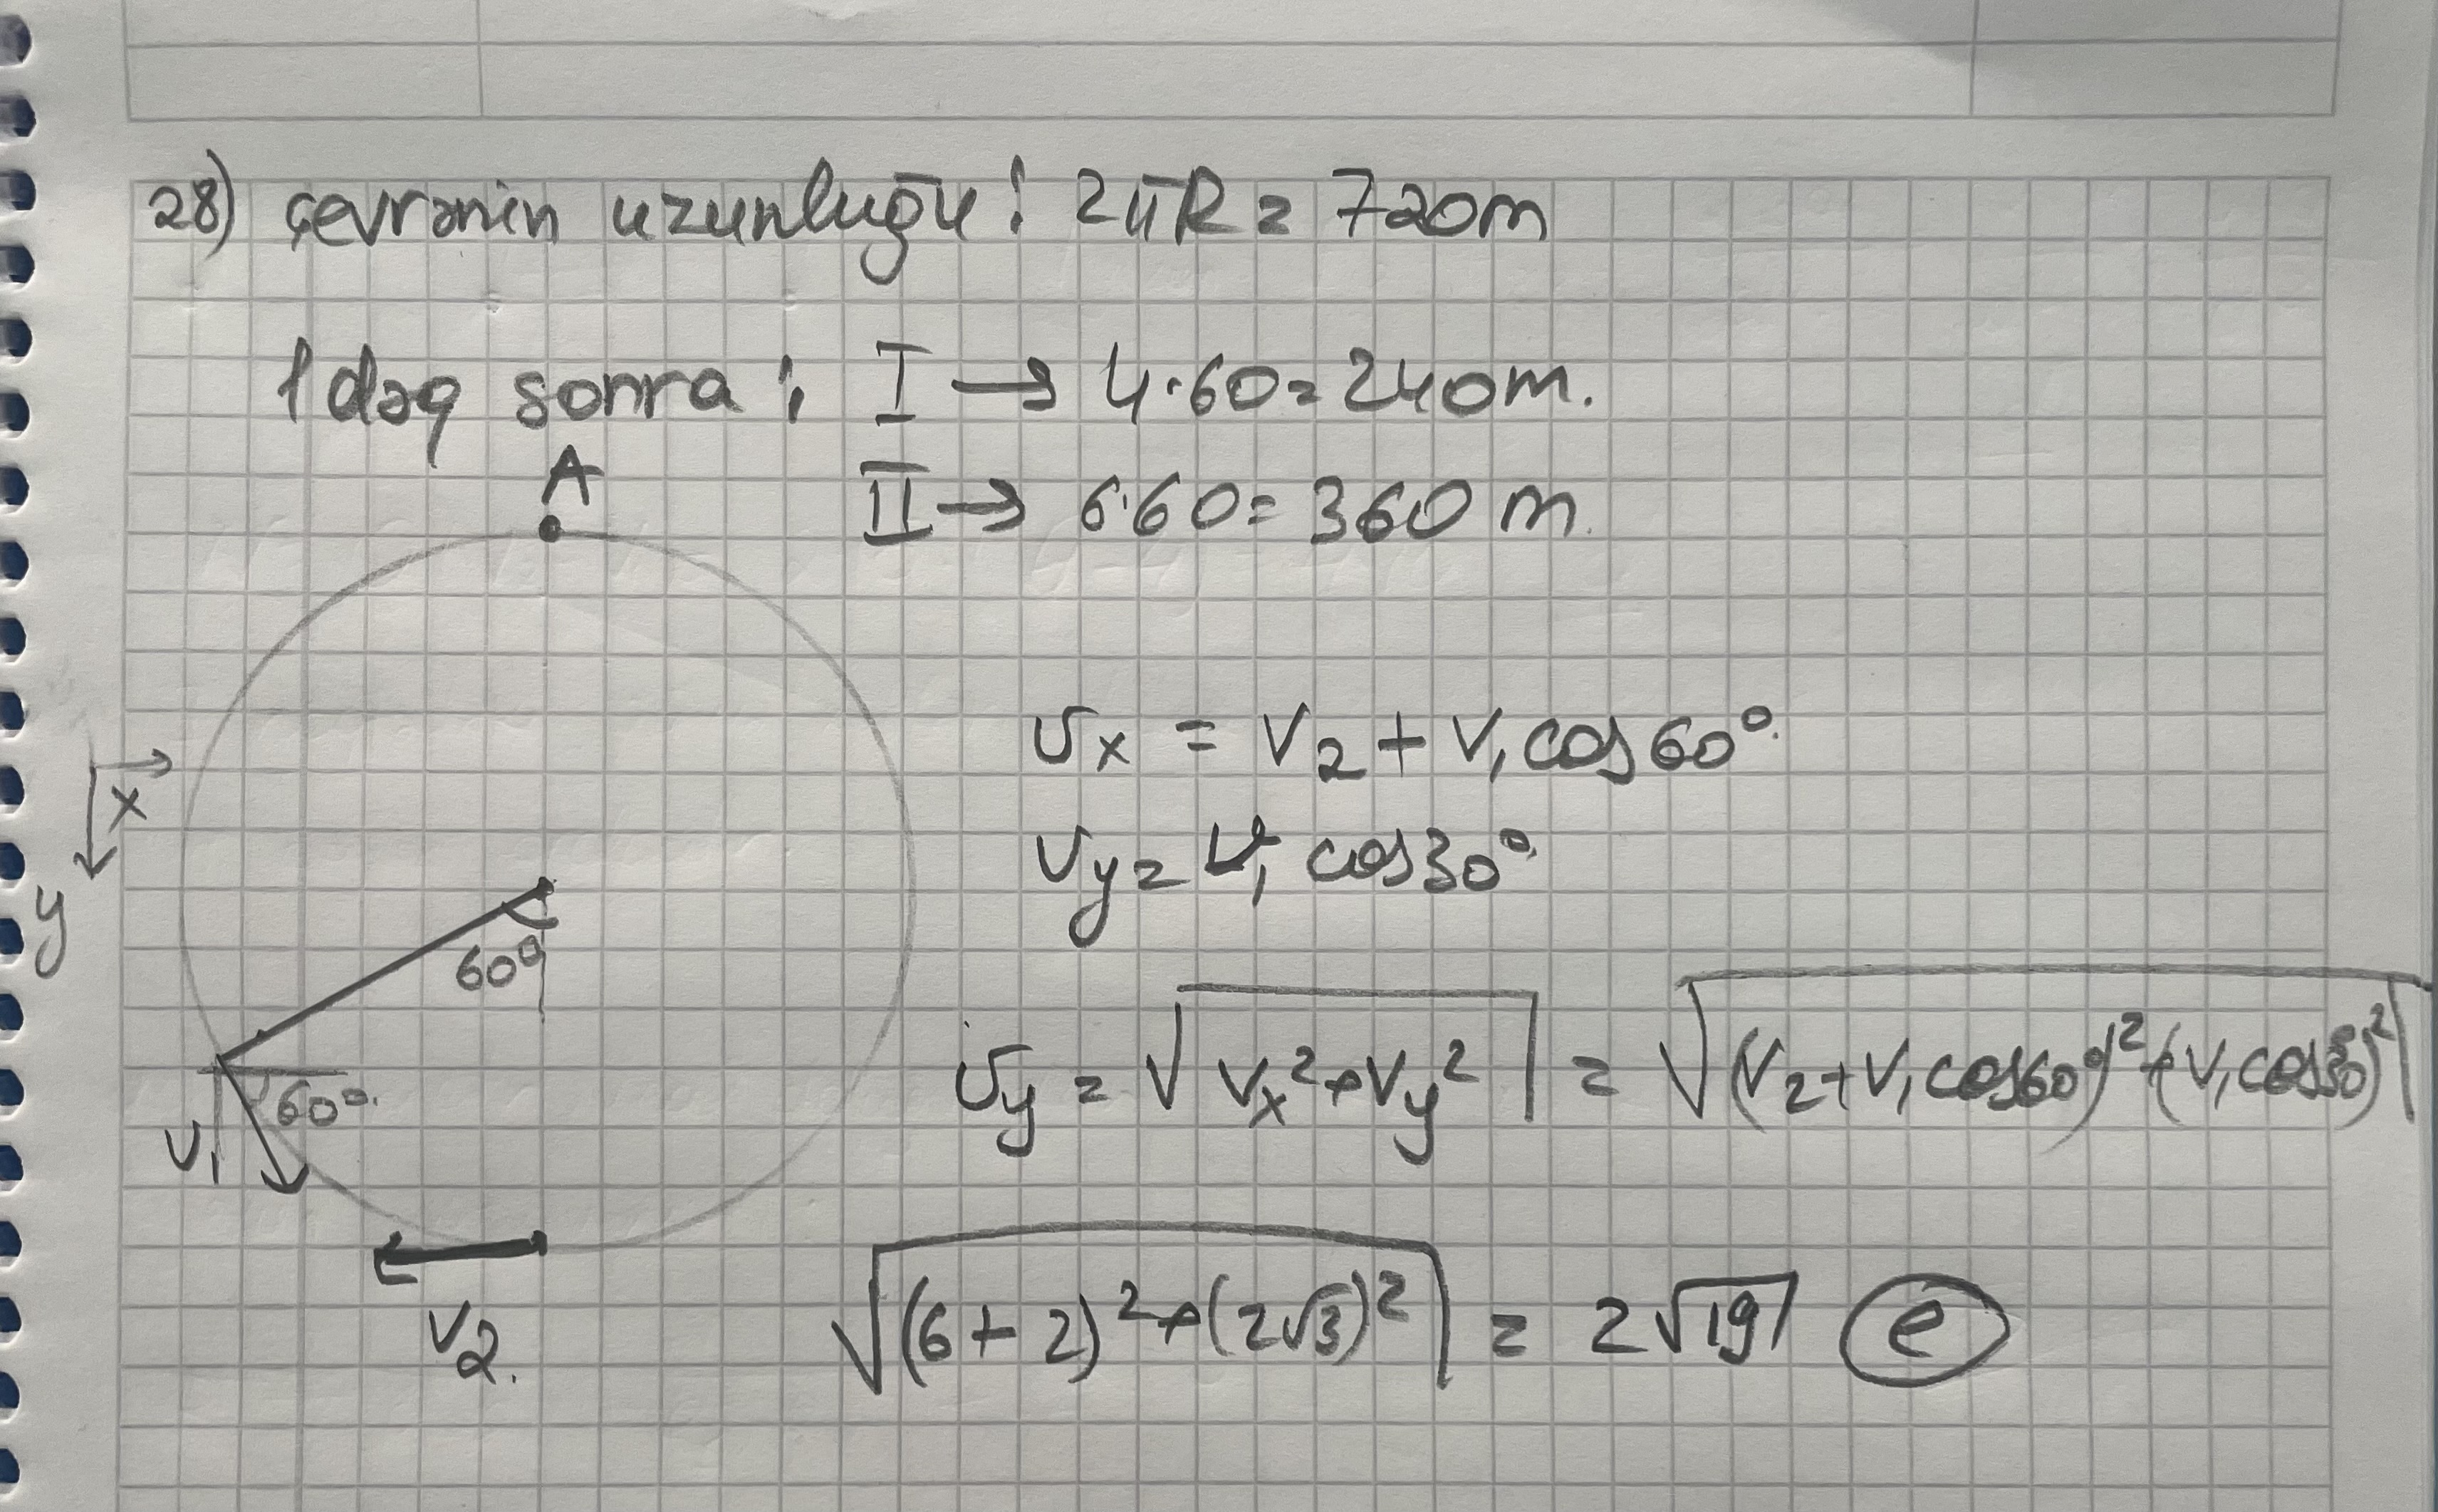 28) çevrənin uzunluğu: 2πR = 720m
1 dəq sonra: I → 4·60=240m.
II → 6·60=360 m.
A
υx = V2 + V1 cos60°
υy = υ1 cos30°
x
y
60°
60°
V1
V2.
υy = √(Vx² + Vy²) = √((V2+V1cos60°)² + (V1cos30°)²)
√((6+2)² + (2√3)²) = 2√19 e